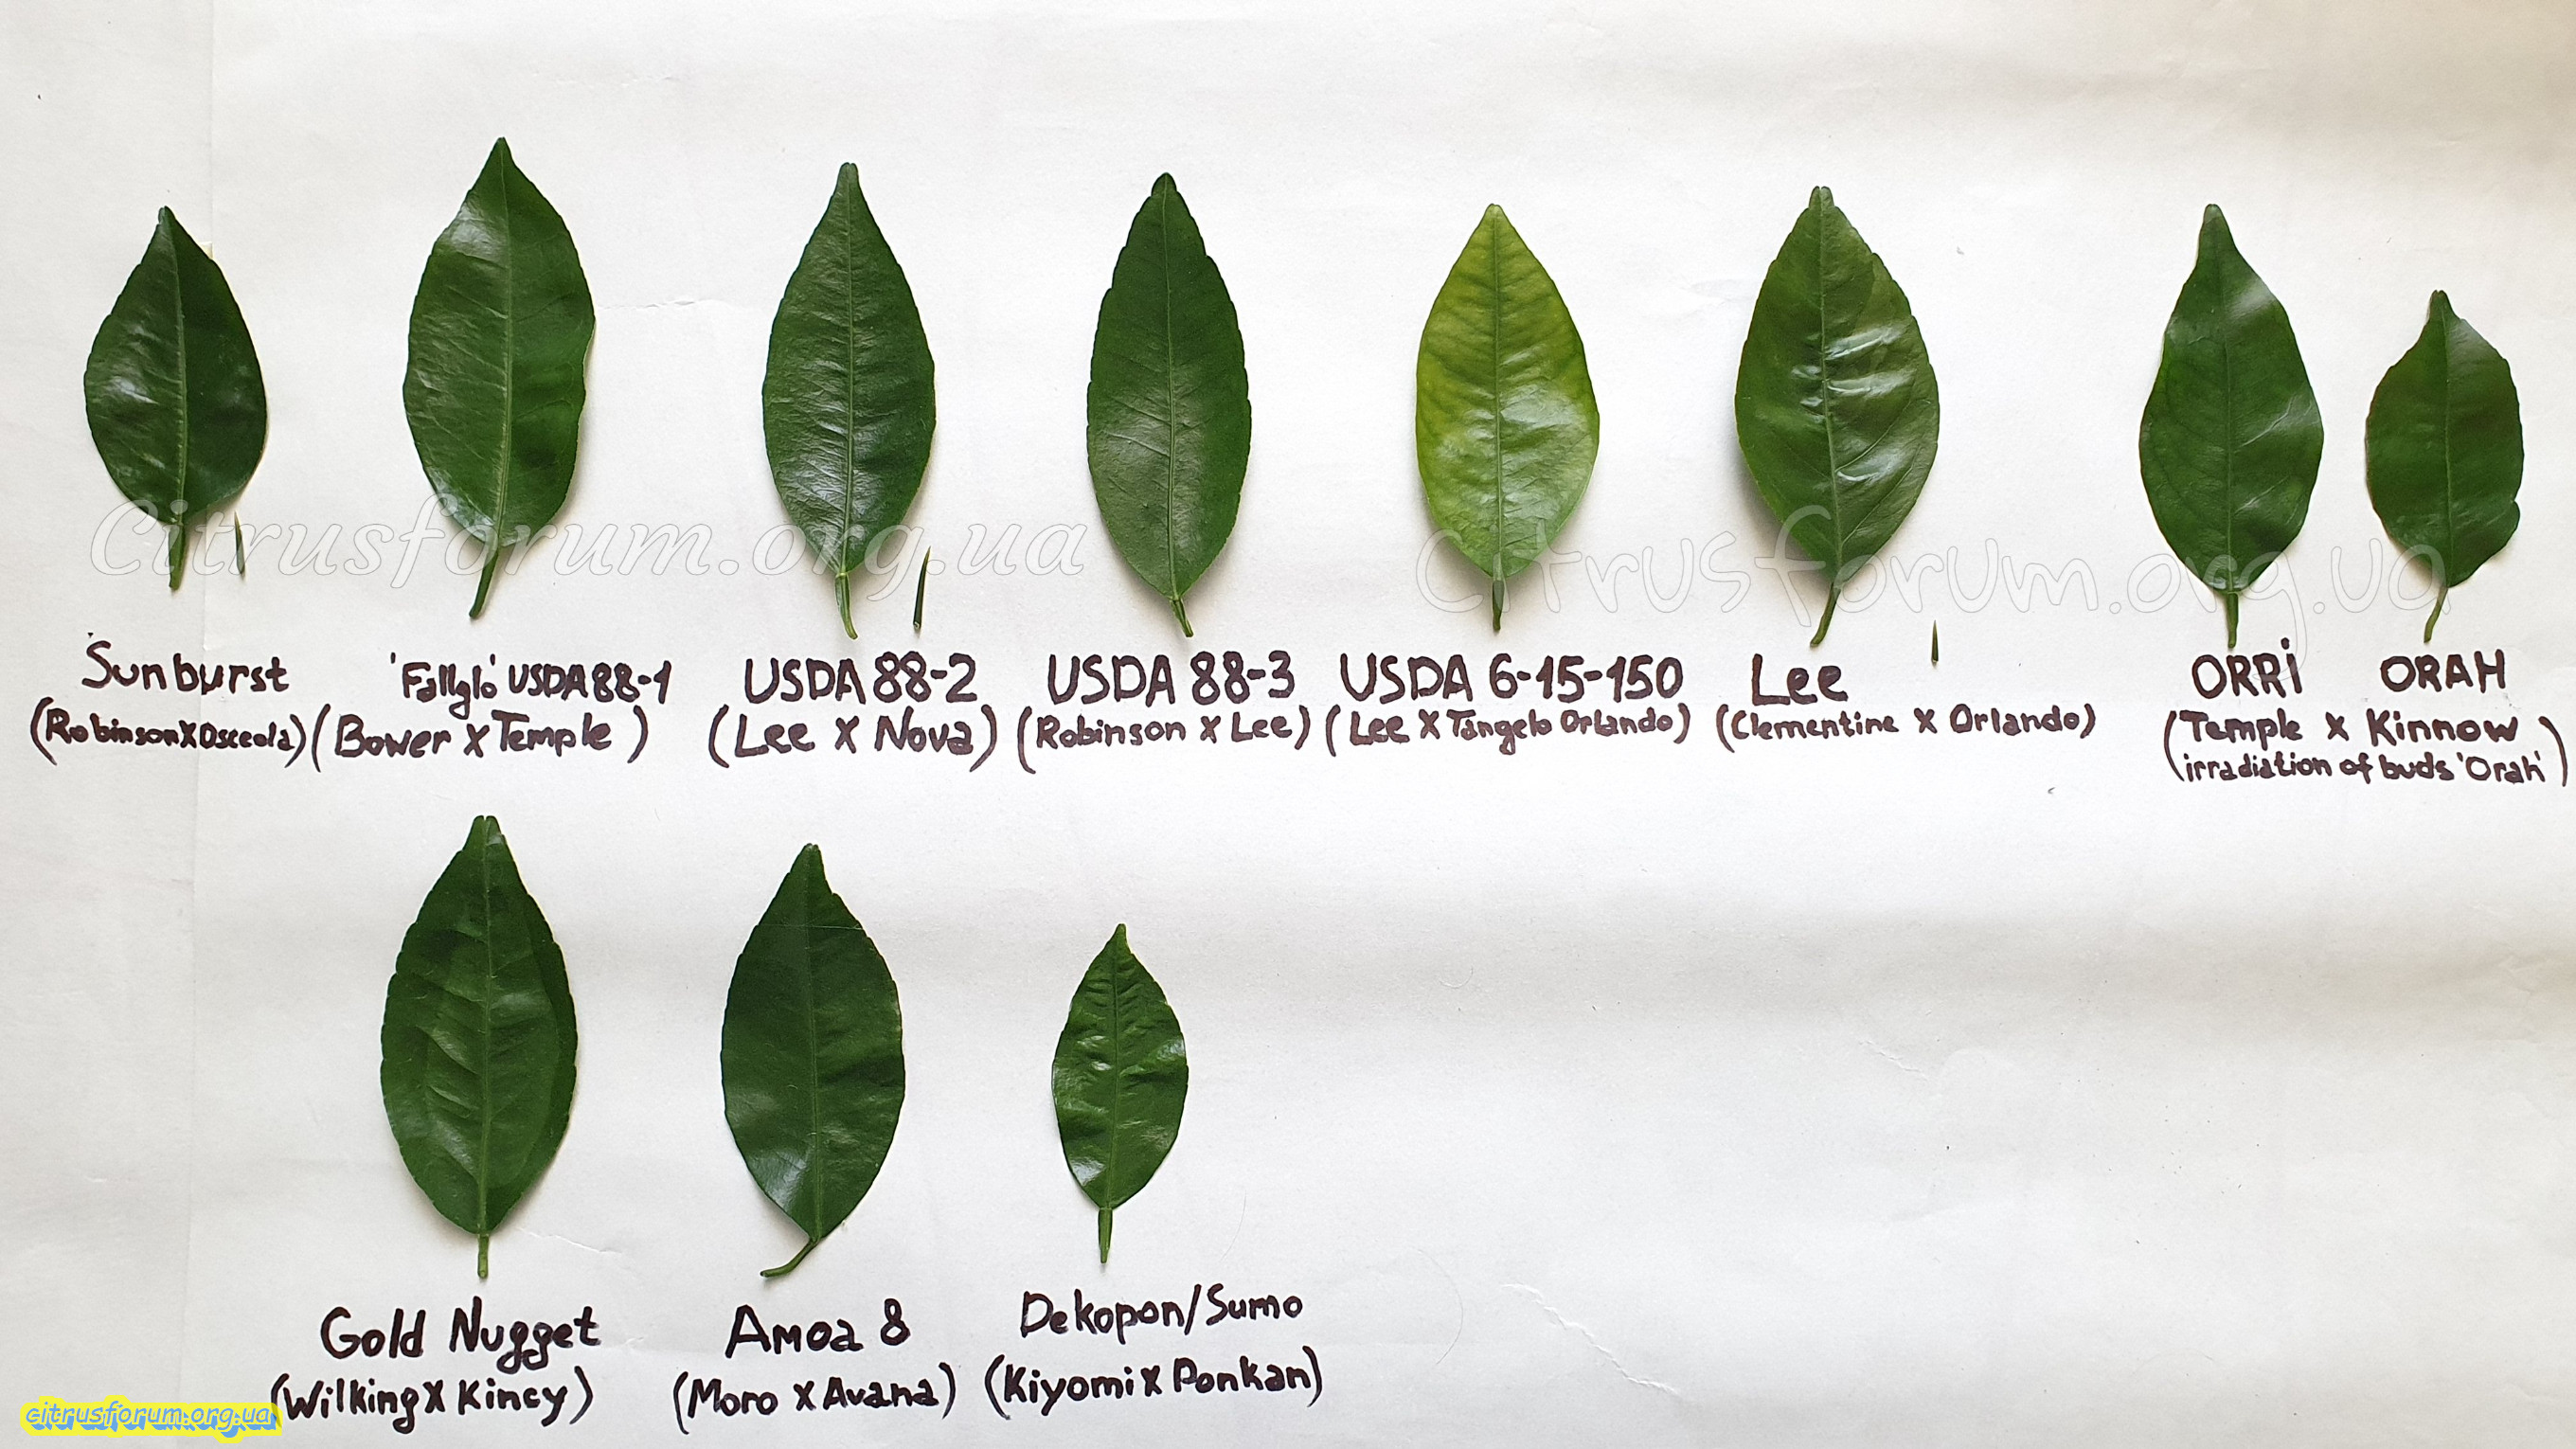 Citrusforum.org.ua
Citrusforum.org.ua
Sunburst
(RobinsonXOsceola)
'Fallglo' USDA88-1
(Bower X Temple)
USDA 88-2
(Lee X Nova)
USDA 88-3
(Robinson X Lee)
USDA 6-15-150
(Lee X Tangelo Orlando)
Lee
(Clementine X Orlando)
ORRi ORAH
(Temple X Kinnow)
(irradiation of buds 'Orah')
Gold Nugget
(Wilking X Kincy)
Amoa 8
(Moro X Avana)
Dekopon/Sumo
(Kiyomi X Ponkan)
citrusforum.org.ua